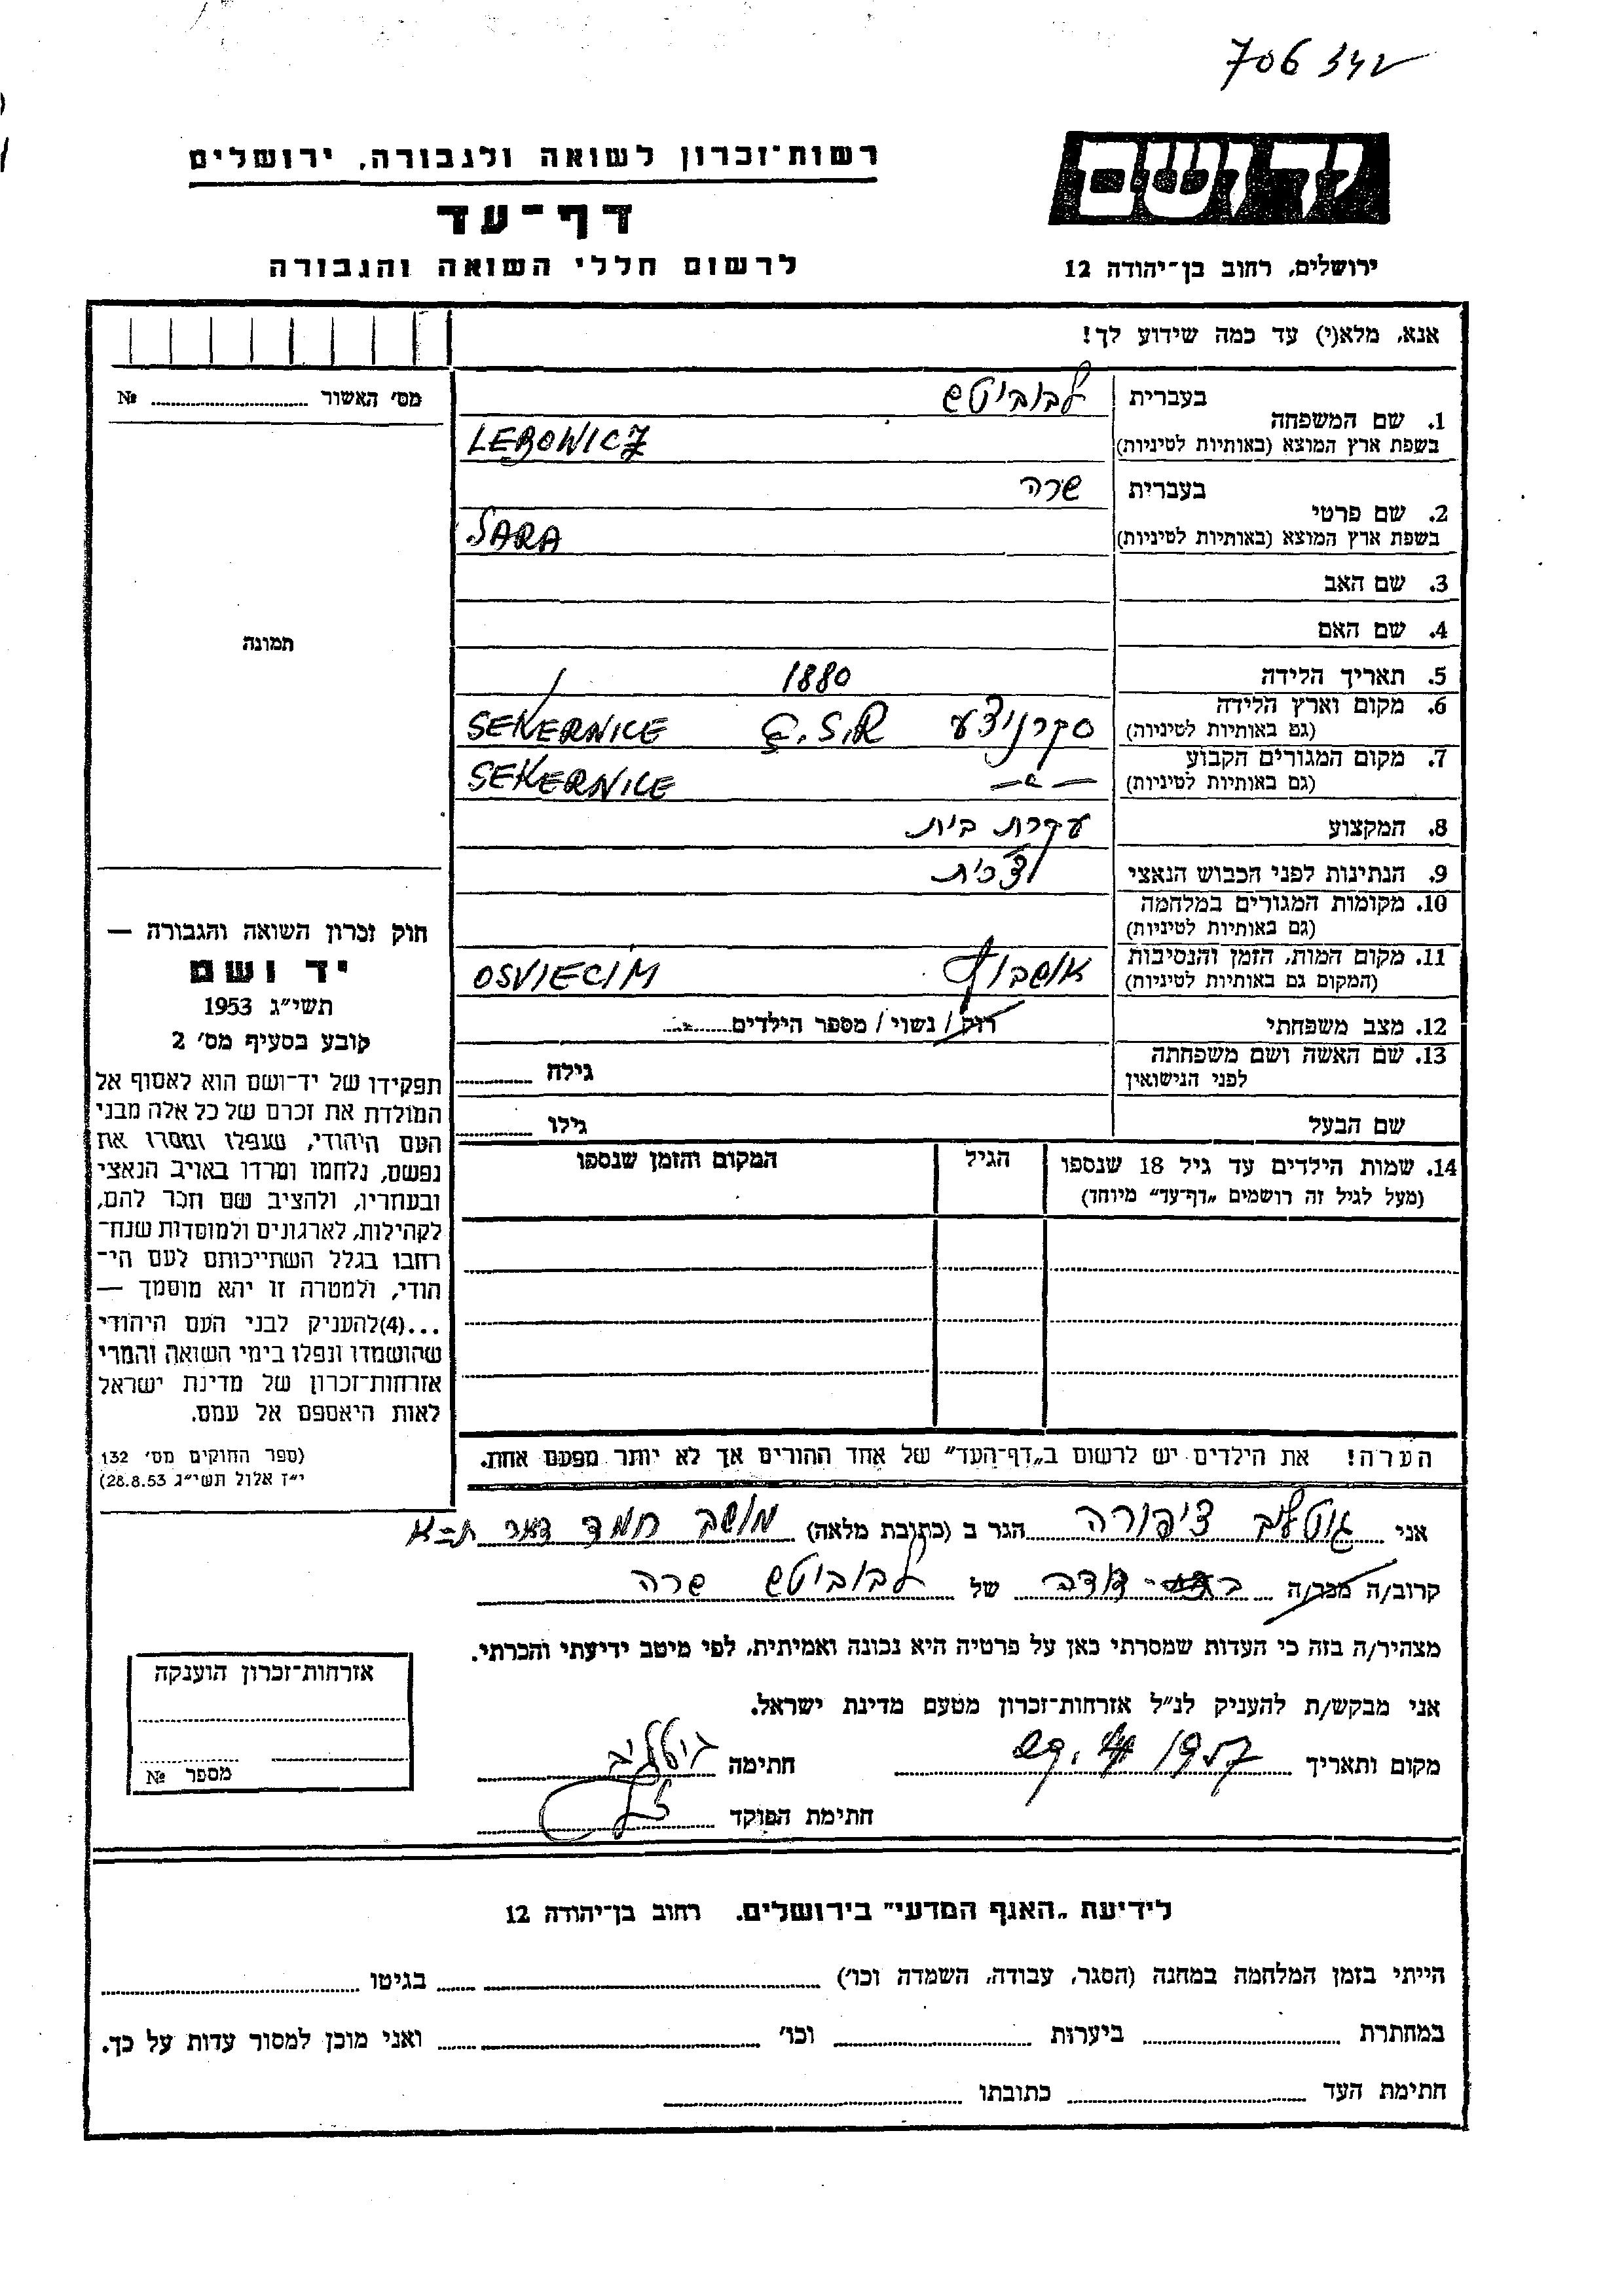 706 342
יד ושם
רשות־זכרון לשואה ולגבורה, ירושלים
דף־עד
לרשום חללי השואה והגבורה
ירושלים, רחוב בן־יהודה 12
אנא, מלא(י) עד כמה שידוע לך!
מס׳ האשור ............ №
תמונה
1. שם המשפחה
בעברית לבוביטש
בשפת ארץ המוצא (באותיות לטיניות) LEBOWICZ
2. שם פרטי
בעברית שרה
בשפת ארץ המוצא (באותיות לטיניות) SARA
3. שם האב
4. שם האם
5. תאריך הלידה 1880
6. מקום וארץ הלידה
(גם באותיות לטיניות) סקרניצע Č.S.R SEKERNICE
7. מקום המגורים הקבוע
(גם באותיות לטיניות) —〃— SEKERNICE
8. המקצוע עקרת בית
9. הנתינות לפני הכבוש הנאצי צ׳כית
10. מקומות המגורים במלחמה
(גם באותיות לטיניות)
11. מקום המות, הזמן והנסיבות
(המקום גם באותיות לטיניות) אושבוץ OSVIECIM
12. מצב משפחתי רוק/ נשוי/ מספר הילדים
13. שם האשה ושם משפחתה
לפני הנישואין גילה
שם הבעל גילו
14. שמות הילדים עד גיל 18 שנספו
(מעל לגיל זה רושמים „דף־עד״ מיוחד)
הגיל
המקום והזמן שנספו
הערה! את הילדים יש לרשום ב„דף־העד״ של אחד ההורים אך לא יותר מפעם אחת.
חוק זכרון השואה והגבורה —
יד ושם
תשי״ג 1953
קובע בסעיף מס׳ 2
תפקידו של יד־ושם הוא לאסוף אל
המולדת את זכרם של כל אלה מבני
העם היהודי, שנפלו ומסרו את
נפשם, נלחמו ומרדו באויב הנאצי
ובעוזריו, ולהציב שם וזכר להם,
לקהילות, לארגונים ולמוסדות שנח־
רבו בגלל השתייכותם לעם הי־
הודי, ולמטרה זו יהא מוסמך —
...(4)להעניק לבני העם היהודי
שהושמדו ונפלו בימי השואה והמרי
אזרחות־זכרון של מדינת ישראל
לאות היאספם אל עמם.
(ספר החוקים מס׳ 132
י״ז אלול תשי״ג 28.8.53)
אני גוטליב ציפורה הגר ב (כתובת מלאה) מושב חמד דאר ת=א
קרוב/ה מכר/ה דודה של לבוביטש שרה
מצהיר/ה בזה כי העדות שמסרתי כאן על פרטיה היא נכונה ואמיתית, לפי מיטב ידיעתי והכרתי.
אני מבקש/ת להעניק לנ״ל אזרחות־זכרון מטעם מדינת ישראל.
מקום ותאריך 1957 חתימה גוטליב
חתימת הפוקד
אזרחות־זכרון הוענקה
מספר №
לידיעת „האגף המדעי״ בירושלים, רחוב בן־יהודה 12
הייתי בזמן המלחמה במחנה (הסגר, עבודה, השמדה וכו׳) בגיטו
במחתרת ביערות וכו׳ ואני מוכן למסור עדות על כך.
חתימת העד כתובתו